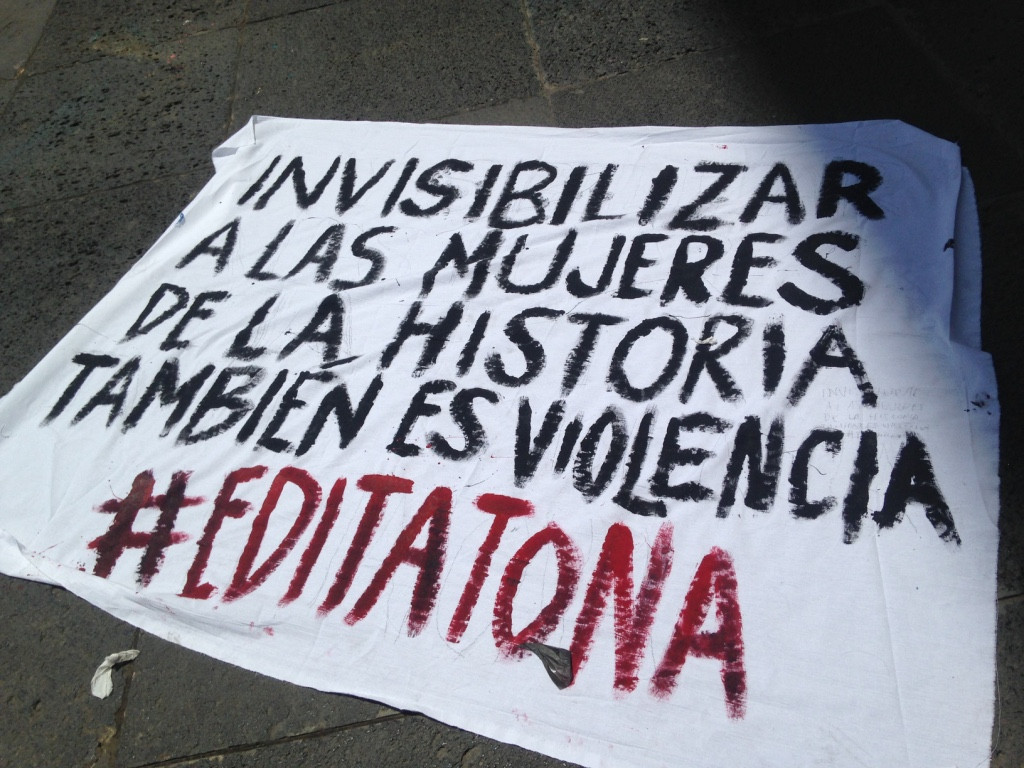 INVISIBILIZAR
A LAS MUJERES
DE LA HISTORIA
TAMBIEN ES VIOLENCIA
#EDITATONA